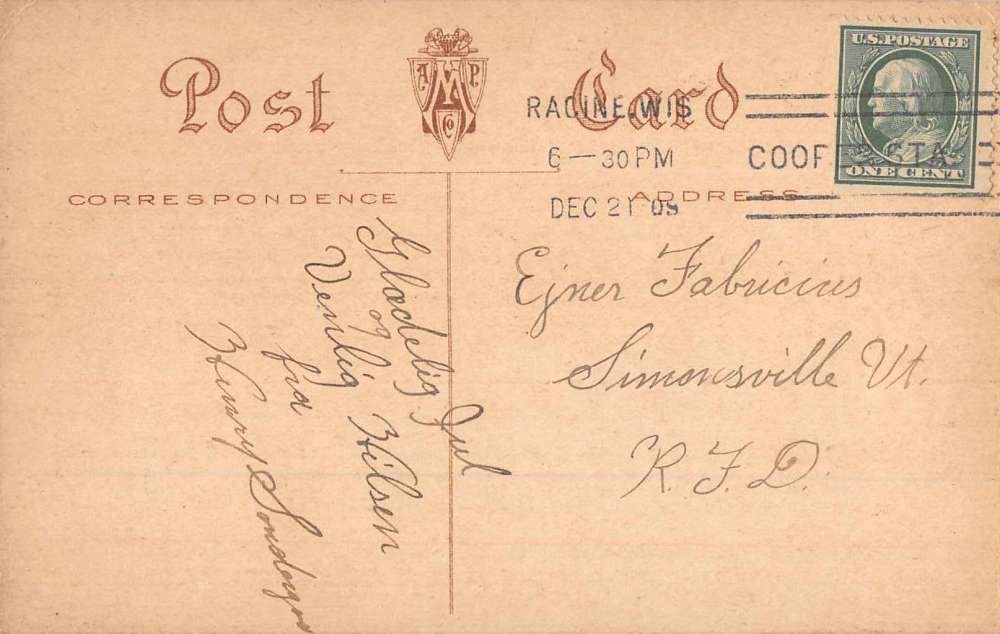 Post Card
A M P Co
RACINE, WIS
6—30 PM
DEC 21 09
U.S. POSTAGE
ONE CENT
STA.
CORRESPONDENCE
ADDRESS
Glædelig Jul
og
Venlig Hilsen
fra
Henry
Ejner Fabricius
Simonsville Vt.
R. F. D.